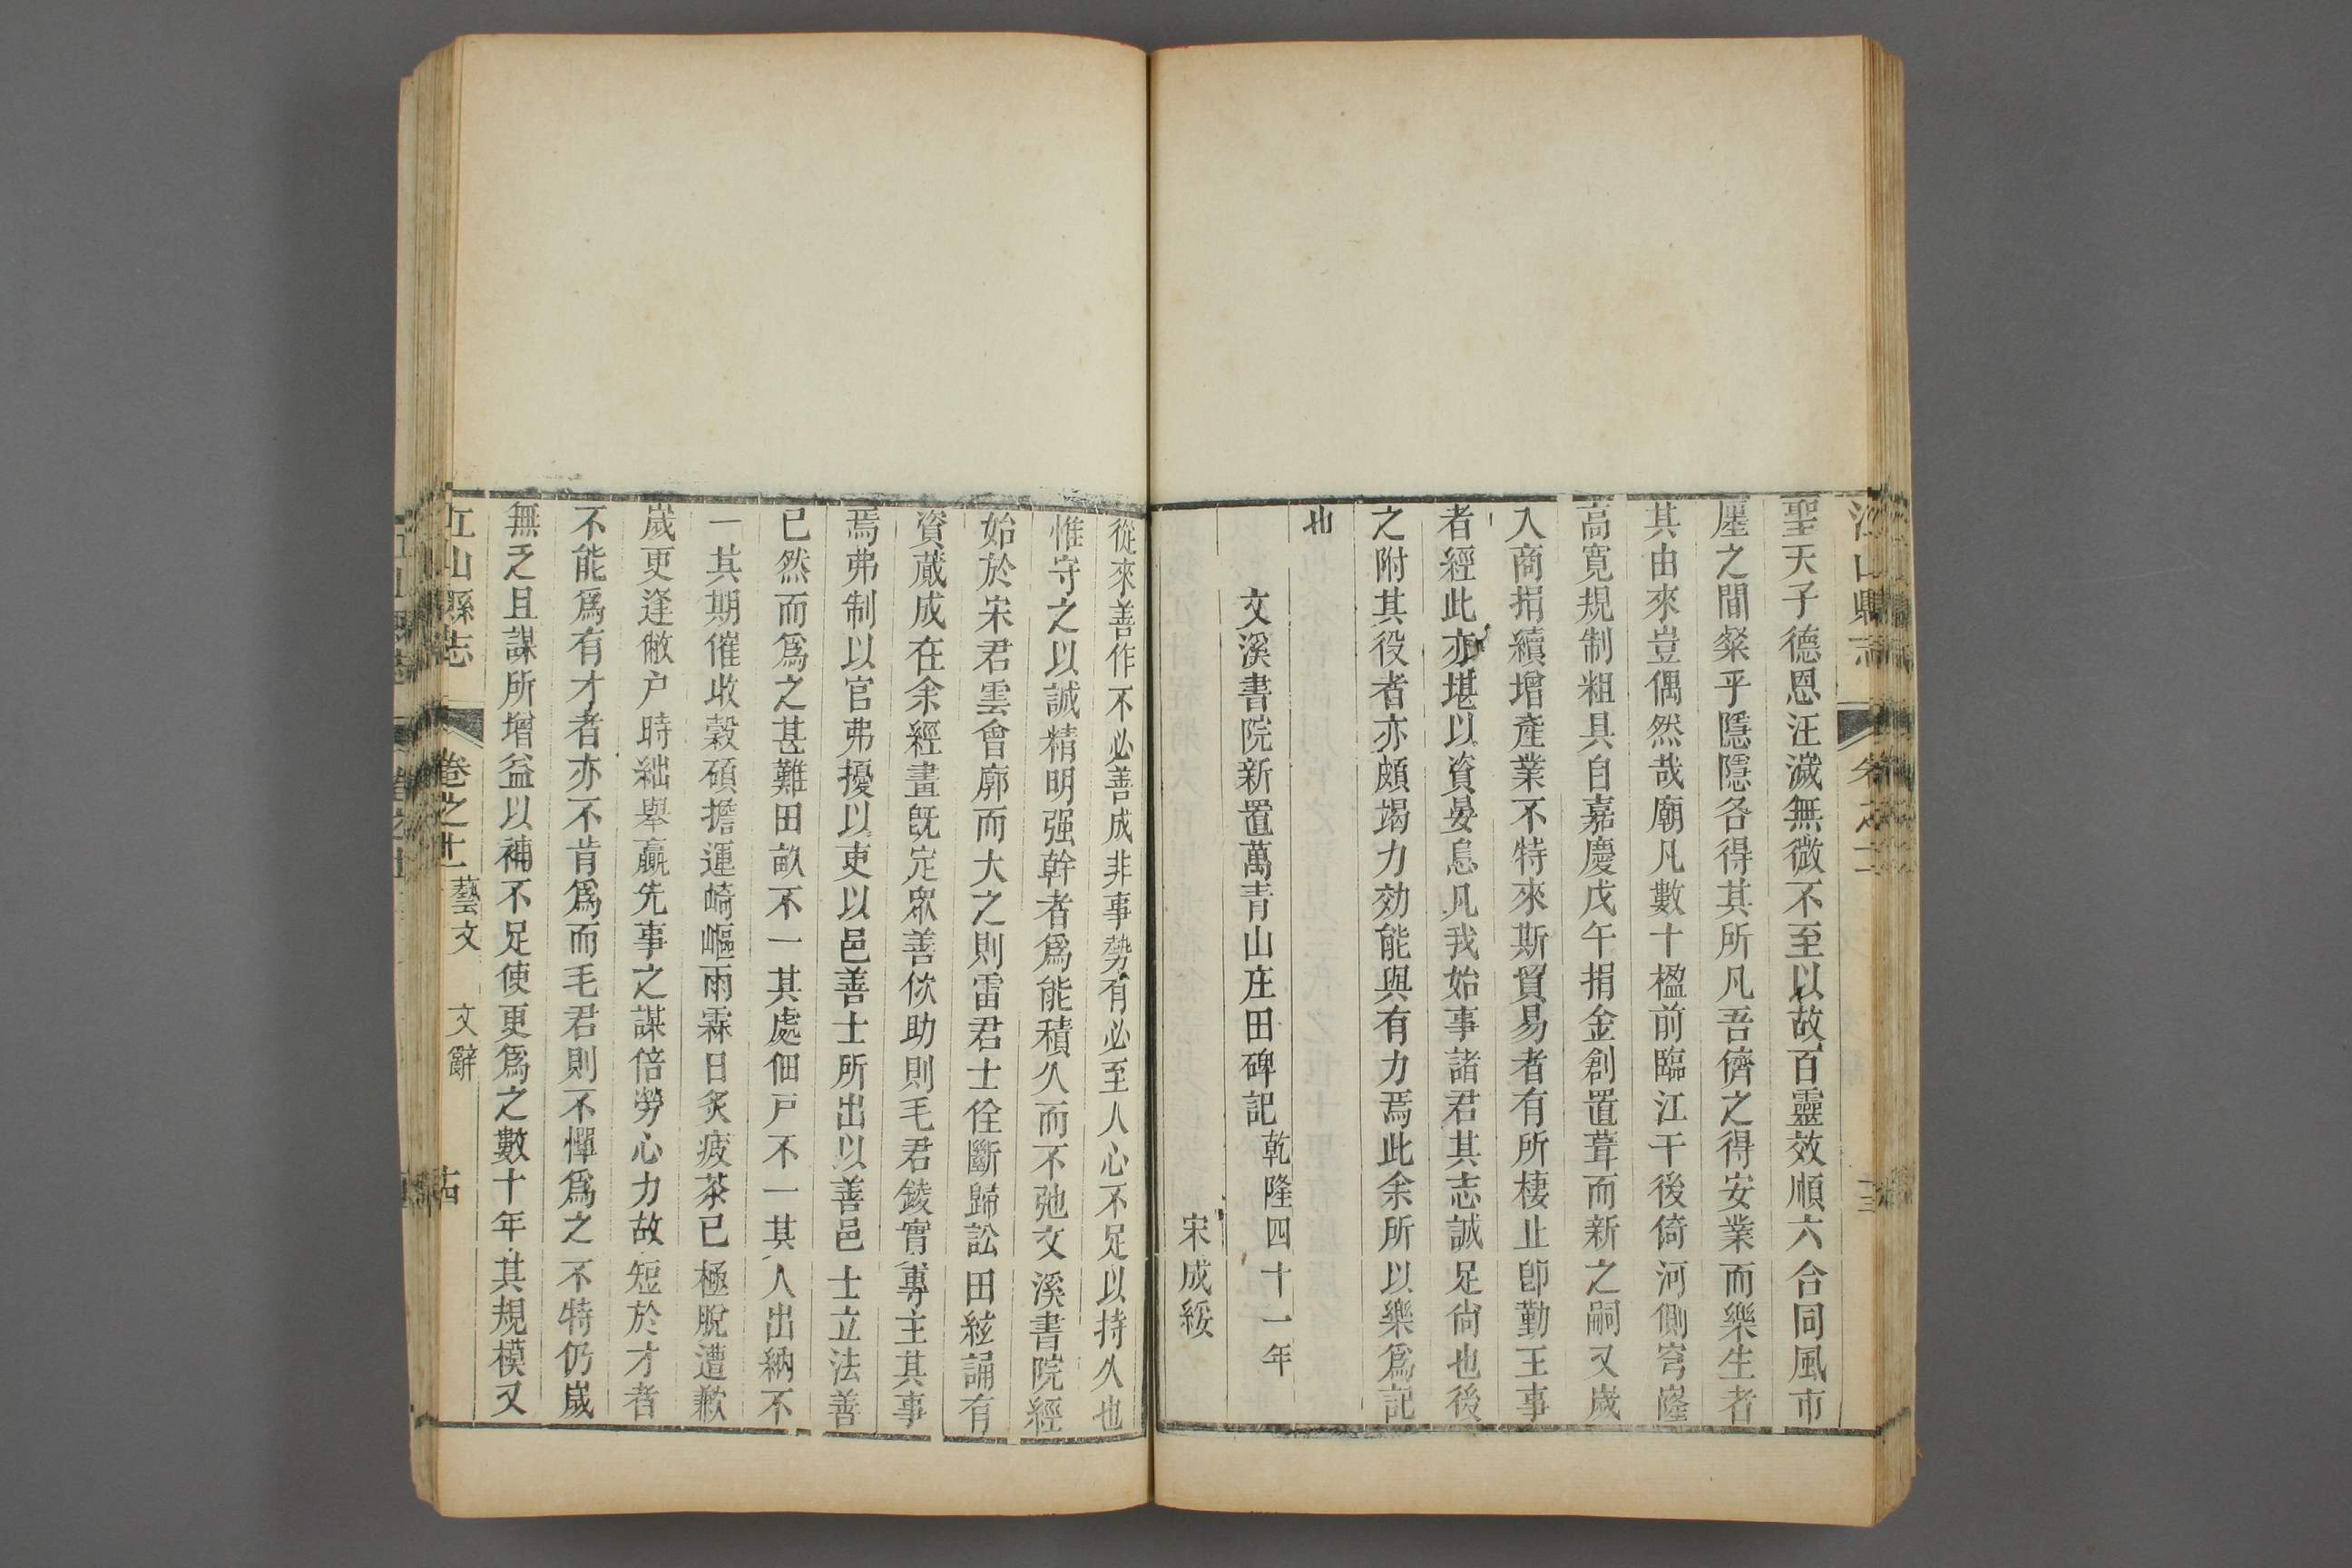 聖天子德恩汪濊無微不至以故百靈效順六合同風市
廛之間粲乎隱隱各得其所凡吾儕之得安業而樂生者
其由來豈偶然哉廟凡數十楹前臨江干後倚河側穹窿
高寬規制粗具自嘉慶戊午捐金創置葺而新之嗣又歲
入商捐續增產業不特來斯貿易者有所棲止卽勤王事
者經此亦堪以資晏息凡我始事諸君其志誠足尙也後
之附其役者亦頗竭力効能與有力焉此余所以樂爲記
也
文溪書院新置萬青山庄田碑記乾隆四十一年
宋成綏
從來善作不必善成非事勢有必至人心不足以持久也
惟守之以誠精明强幹者爲能積久而不弛文溪書院經
始於宋君雲會廓而大之則雷君士佺斷歸訟田絃誦有
資蕆成在余經畫既定眾善佽助則毛君錂實專主其事
焉弗制以官弗擾以吏以邑善士所出以善邑士立法善
已然而爲之甚難田畝不一其處佃戸不一其人出納不
一其期催收穀碩擔運崎嶇雨霖日炙疲苶已極脫遭歉
歲更逢敝户時絀舉贏先事之謀倍勞心力故短於才者
不能爲有才者亦不肯爲而毛君則不憚爲之不特仍歲
無乏且謀所增益以補不足使更爲之數十年其規模又
江山縣志 卷之十一 藝文 文辭 十四